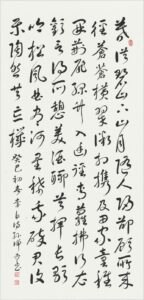 暮從碧山下山月隨人歸卻顧所來
徑蒼蒼橫翠微相攜及田家童稚
開荊扉綠竹入幽徑青蘿拂行衣
歡言得所憩美酒聊共揮長歌
吟松風曲盡河星稀我醉君復
樂陶然共忘機 癸巳初春李白詩孫